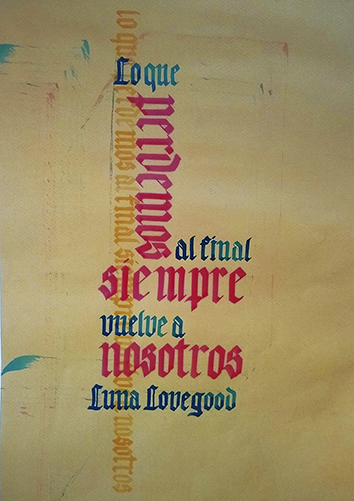 Lo que
perdemos
al final
siempre
vuelve a
nosotros
Luna Lovegood
lo que perdemos al final siempre vuelve a nosotros